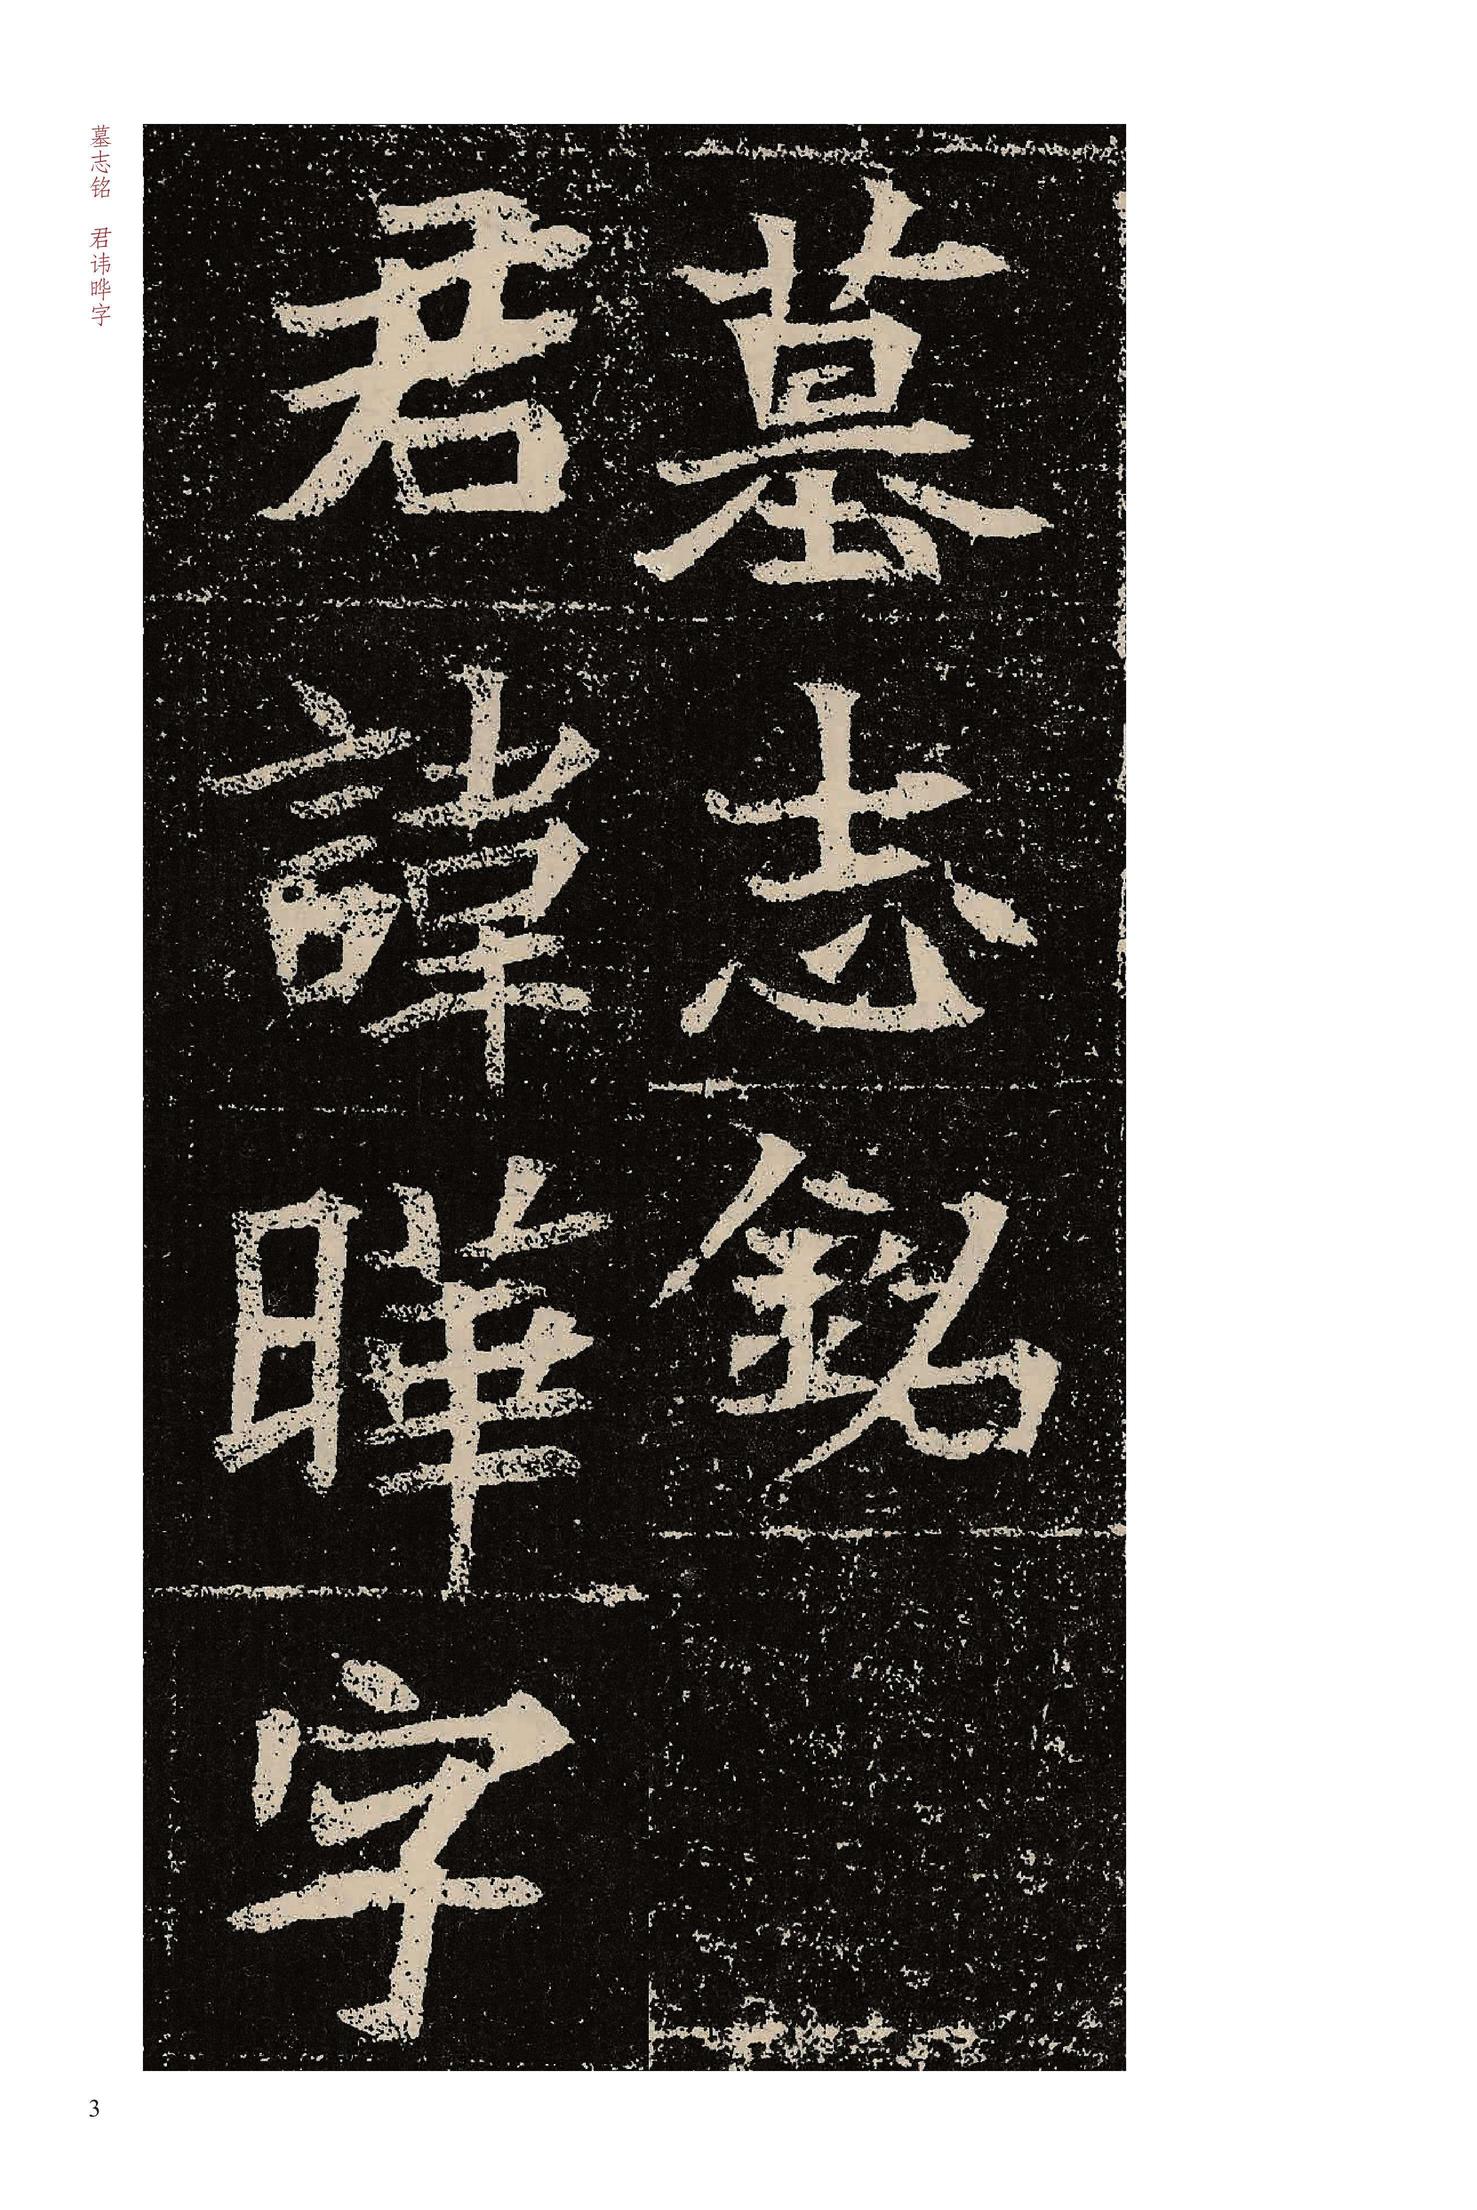 墓志銘
君諱曄字
墓志铭　君讳晔字
3